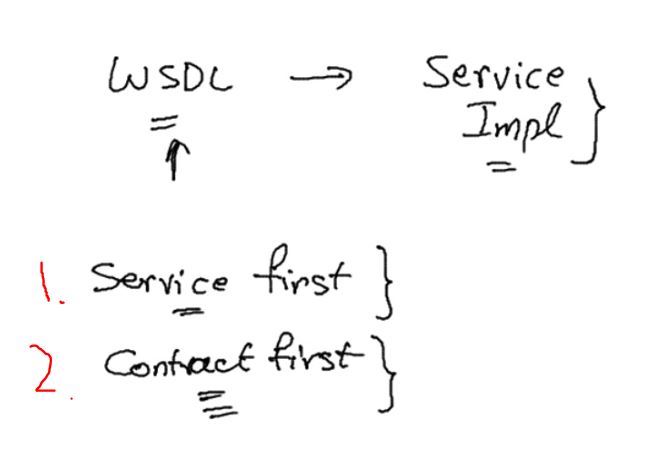 WSDL → Service
Impl }
1. Service first }
2. Contract first }